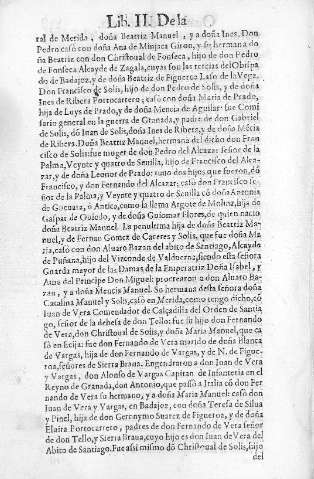 Lib. II. De la
ral de Merida, doña Beatriz Manuel, y a doña Ines. Don
Pedro casò con doña Ana de Minjaca Giron, y su hermana do
ña Beatriz con don Christoual de Fonseca, hijo de don Pedro
de Fonseca Alcayde de Zagala, cuyas son las tercias del Obispa
do de Badajoz, y de doña Beatriz de Figueroa Laso de la Vega.
Don Francisco de Solis, hijo de don Pedro de Solis, y de doña
Ines de Ribera Portocarrero, casò con doña Maria de Prado,
hija de Luys de Prado, y de doña Mencia de Aguilar fue Comi
sario general en la guerra de Granada, y padre de don Gabriel
de Solis, dõ Iuan de Solis, doña Ines de Ribera, y de doña Mécia
de Ribera. Doña Beatriz Manuel, hermana del dicho don Fran
cisco de Solis fue muger de don Pedro del Alcazar Señor de la
Palma, Veynte y quatro de Seuilla, hijo de Francisco del Alca-
zar, y de doña Leonor de Prado: tuuo dos hijos que fueron, dõ
Francisco, y don Fernando del Alcazar, casò don Francisco se-
ñor de la Palma, y Veynte y quatro de Seuilla cõ doña Antonia
de Gueuara, ò Antico, como la llama Argote de Molina, hija de
Gaspar de Ouiedo, y de doña Guiomar Flores, de quien nacio
doña Beatriz Manuel. La penultima hija de doña Beatriz Ma-
nuel, y de Fernan Gomez de Caceres y Solis, que fue doña Ma
ria, casò con don Aluaro Bazan del abito de Santiago, Alcayde
de Fuñana, hijo del Vizconde de Valduerna, siendo esta señora
Guarda mayor de las Damas de la Emperatriz Doña Isabel, y
Aura del Principe Don Miguel procrearon a don Aluaro Ba-
zan, y a doña Mencia Manuel. Su hermana desta señora doña
Catalina Manuel y Solis, casò en Merida, como tengo dicho, cõ
Iuan de Vera Comendador de Calçadilla del Orden de Santia
go, señor de la dehesa de don Tello: fue su hijo don Fernando
de Vera, don Christoual de Solis, y doña Maria Manuel, que ca
sò en Ecija: fue don Fernando de Vera marido de doña Blanca
de Vargas, hija de don Fernando de Vargas, y de N. de Figue-
roa, señores de Sierra Braua. Engendraron a don Iuan de Vera
y Vargas, don Alonso de Vargas Capitan de Infanteria en el
Reyno de Granada, don Antonio, que passò a Italia cõ don Fer
nando de Vera su hermano, y a doña Maria Manuel: casò don
Iuan de Vera y Vargas, en Badajoz, con doña Teresa de Silua
y Pinel, hija de don Geronymo Suarez de Figueroa, y de doña
Eluira Portocarrero, padres de don Fernando de Vera señor
de don Tello, y Sierra Braua, cuyo hijo es don Iuan de Vera del
Abito de Santiago. Fue assi mismo dõ Christoual de Solis, hijo
del